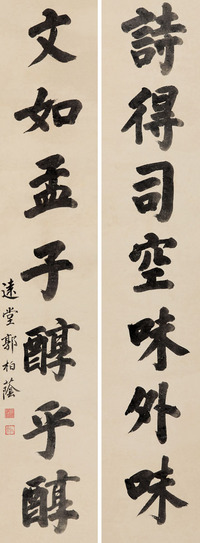 詩得司空味外味
文如孟子醇乎醇
遠堂郭柏蔭